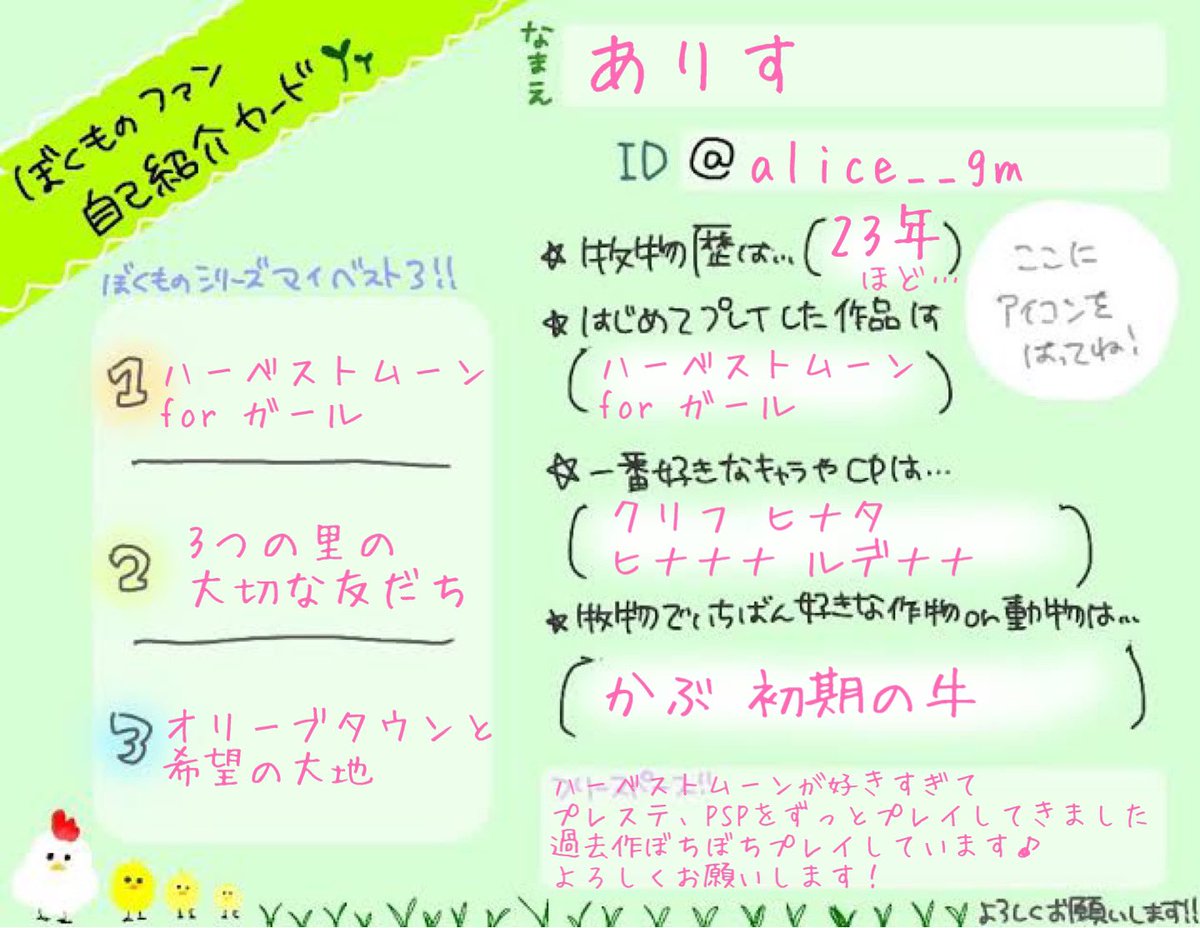 ぼくものファン
自己紹介カード
なまえ
ありす
ID @alice__gm
☆牧物歴は…(23年)
ほど…
ここに
アイコンを
はってね!
☆はじめてプレイした作品は
(ハーベストムーン
for ガール)
☆一番好きなキャラやCPは…
(クリフ ヒナタ
ヒナナナ ルデナナ)
☆牧物でいちばん好きな作物or動物は…
(かぶ 初期の牛)
ぼくものシリーズマイベスト3!!
1 ハーベストムーン
for ガール
2 3つの里の
大切な友だち
3 オリーブタウンと
希望の大地
フリースペース!!
ハーベストムーンが好きすぎて
プレステ、PSPをずっとプレイしてきました
過去作ぼちぼちプレイしています♪
よろしくお願いします!
よろしくお願いします!!